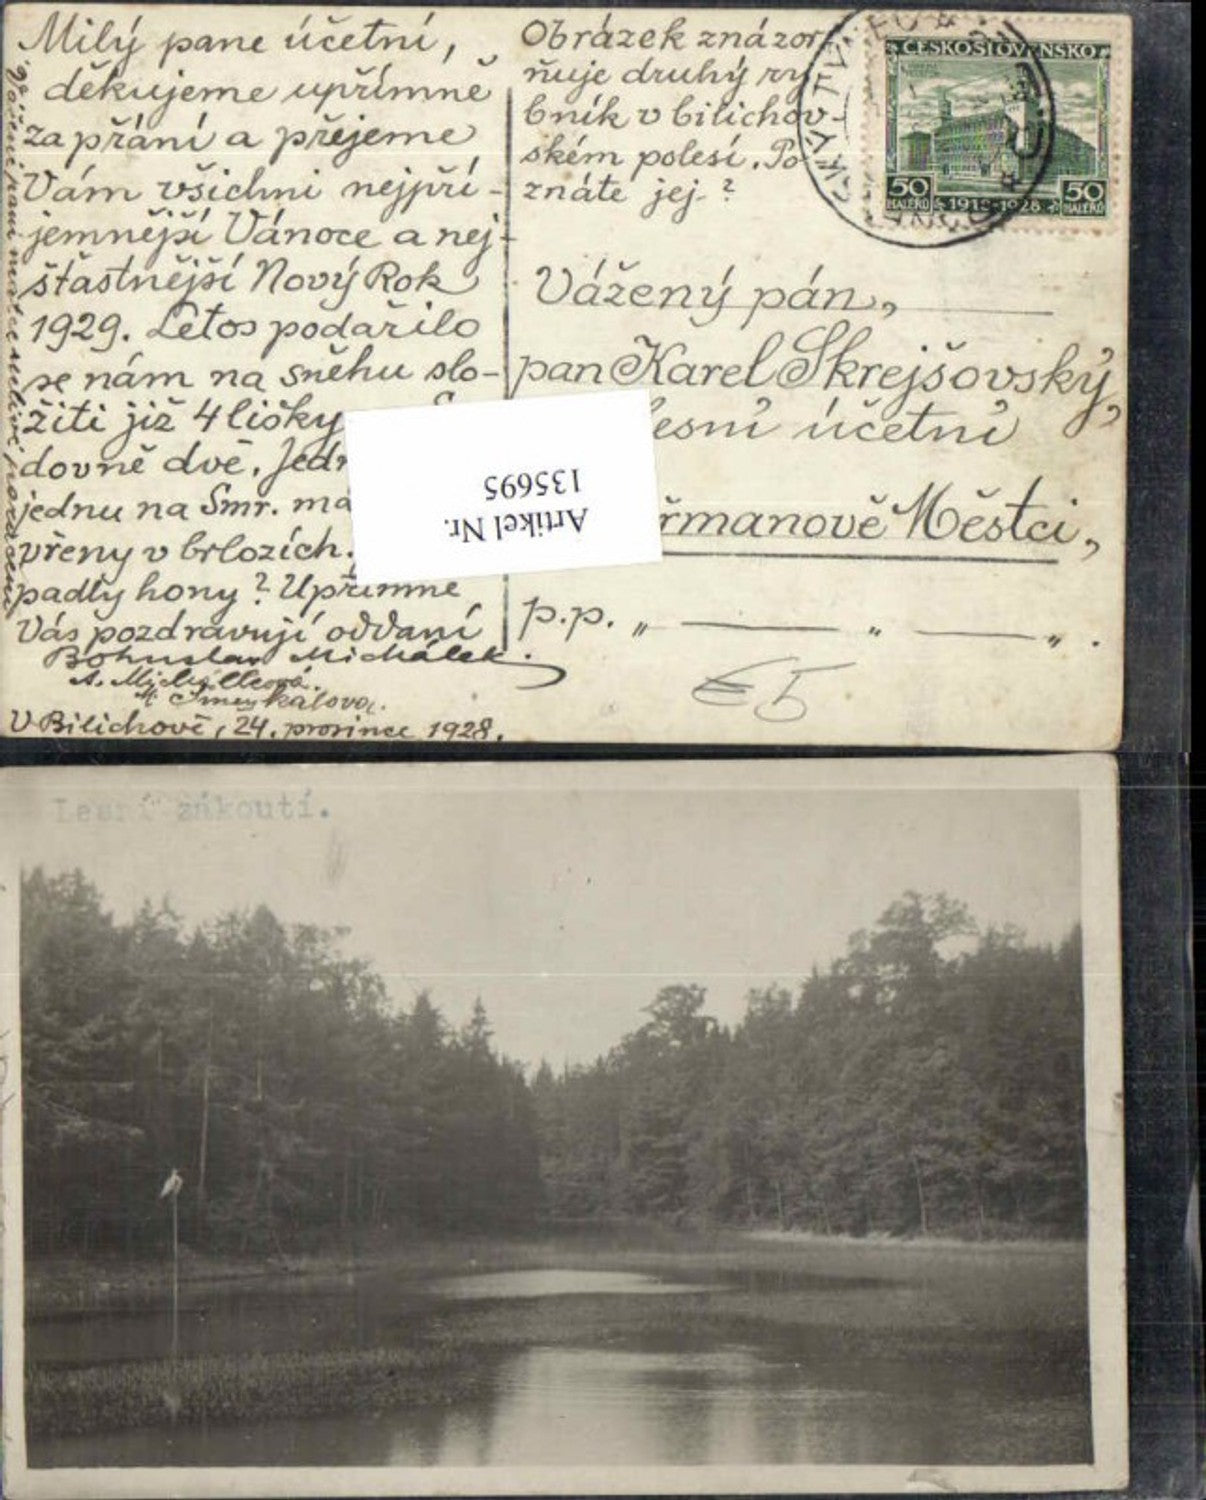 Milý pane účetní,
děkujeme upřímně
za přání a přejeme
Vám všichni nejpří-
jemnější Vánoce a nej-
šťastnější Nový Rok
1929. Letos podařilo
se nám na sněhu slo-
žiti již 4 lišky
dovně dvě. Jed
jednu na Smr. má
vřeny v brlozích.
padly hony? Upřímně
Vás pozdravují oddaní
Bohuslav Michálek.
V Bilichově, 24. prosince 1928.
Obrázek znázor
ňuje druhý ry
bník v bilichov-
ském polesí. Po
znáte jej?
ČESKOSLOVENSKO
50 HALÉŘŮ 1918-1928 50 HALÉŘŮ
Vážený pán,
pan Karel Skrejšovský,
lesní účetní
řmanově Městci,
p.p. „ — „ — „ .
Artikel Nr.
135695
Lesní zákoutí.